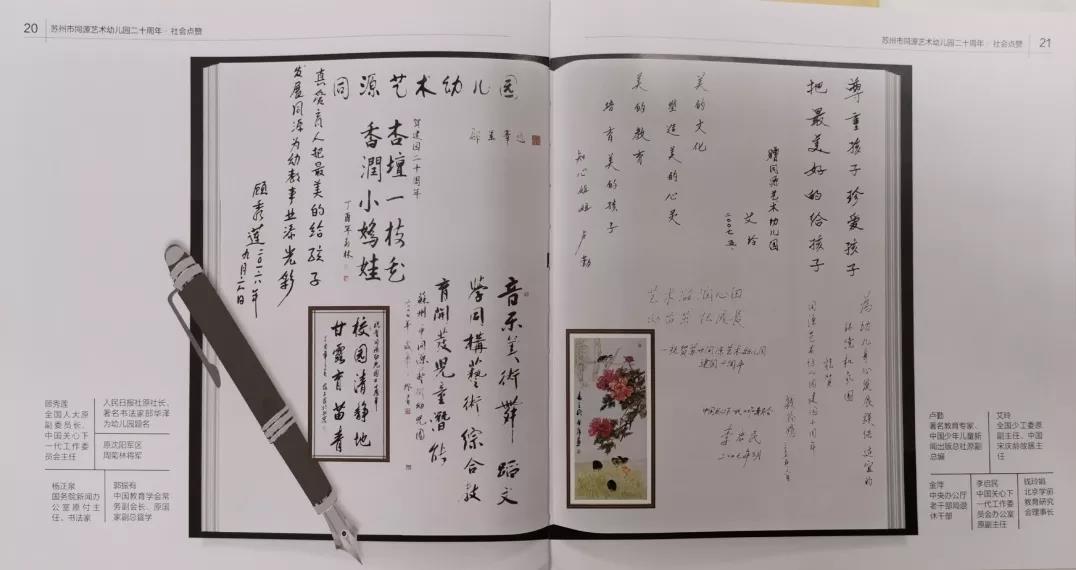 20
苏州市同源艺术幼儿园二十周年 · 社会点赞
同源艺术幼儿园
贺建园二十周年
杏坛一枝花
香润小鸠娃
真爱育人把最美的给孩子
发展同源为幼教事业添光彩
顾秀莲二〇一六年
九月六日
音乐美術舞蹈文
学同構藝術綜合教
育開發兒童潛能
校园清静地
甘露育苗青
顾秀莲
全国人大原
副委员长、
中国关心下
一代工作委
员会主任
人民日报社原社长、
著名书法家邵华泽
为幼儿园题名
原沈阳军区
周菊林将军
杨正泉
国务院新闻办
公室原付主
任、书法家
郭振有
中国教育学会常
务副会长、原国
家副总督学
苏州市同源艺术幼儿园二十周年 · 社会点赞
21
尊重孩子珍爱孩子
把最美好的给孩子
赠同源艺术幼儿园
艾玲
二〇〇七.五.
美的文化
塑造美的心灵
美的教育
培育美的孩子
知心姐姐 卢勤
艺术滋润心田
一祝贺苏州同源艺术幼儿园
建园十周年
李启民
为幼儿身心发展提供适宜的
同源艺术幼儿园建园十周年
卢勤
著名教育专家、
中国少年儿童新
闻出版总社原副
总编
艾玲
全国少工委原
副主任、中国
宋庆龄故居主
任
金萍
中央办公厅
老干部局退
休干部
李启民
中国关心下
一代工作委
员会办公室
原副主任
钱玲娟
北京学前
教育研究
会理事长